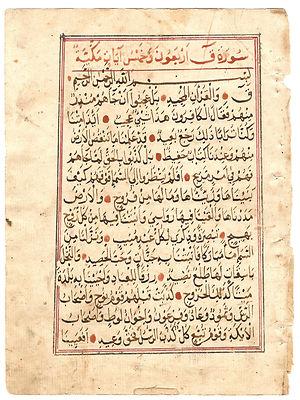 سورة ق اربعون وخمس آيات مكية
بسم الله الرحمن الرحيم
ق والقرآن المجيد بل عجبوا أن جاءهم منذر
منهم فقال الكافرون هذا شيء عجيب أئذا متنا
وكنا ترابا ذلك رجع بعيد قد علمنا ما تنقص الأرض
منهم وعندنا كتاب حفيظ بل كذبوا بالحق لما جاءهم
فهم في أمر مريج أفلم ينظروا إلى السماء فوقهم كيف
بنيناها وزيناها وما لها من فروج والأرض
مددناها وألقينا فيها رواسي وأنبتنا فيها من كل زوج
بهيج تبصرة وذكرى لكل عبد منيب ونزلنا من
السماء ماء مباركا فأنبتنا به جنات وحب الحصيد والنخل
باسقات لها طلع نضيد رزقا للعباد وأحيينا به بلدة
ميتا كذلك الخروج كذبت قبلهم قوم نوح وأصحاب
الرس وثمود وعاد وفرعون وإخوان لوط وأصحاب
الأيكة وقوم تبع كل كذب الرسل فحق وعيد أفعيينا